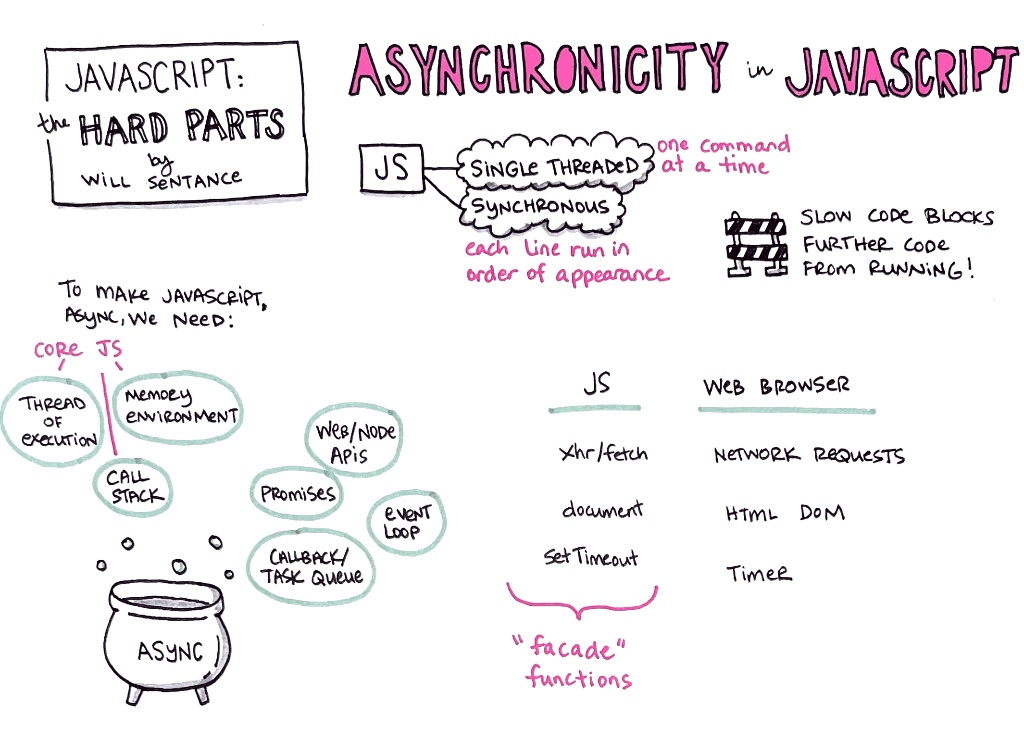 JAVASCRIPT:
the HARD PARTS
by
WILL SENTANCE
ASYNCHRONICITY in JAVASCRIPT
JS
SINGLE THREADED
one command
at a time
SYNCHRONOUS
each line run in
order of appearance
SLOW CODE BLOCKS
FURTHER CODE
FROM RUNNING!
TO MAKE JAVASCRIPT,
ASYNC, WE NEED:
CORE JS
THREAD
OF
EXECUTION
MEMORY
ENVIRONMENT
CALL
STACK
WEB/NODE
APIS
PROMISES
EVENT
LOOP
CALLBACK/
TASK QUEUE
ASYNC
JS
WEB BROWSER
Xhr/fetch
NETWORK REQUESTS
document
HTML DOM
SetTimeout
TIMER
"facade"
functions